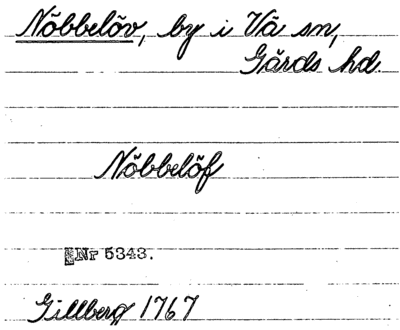 Nöbbelöv, by i Vä sn,
Gärds hd.
Nöbbelöf
Nr 5343.
Gillberg 1767